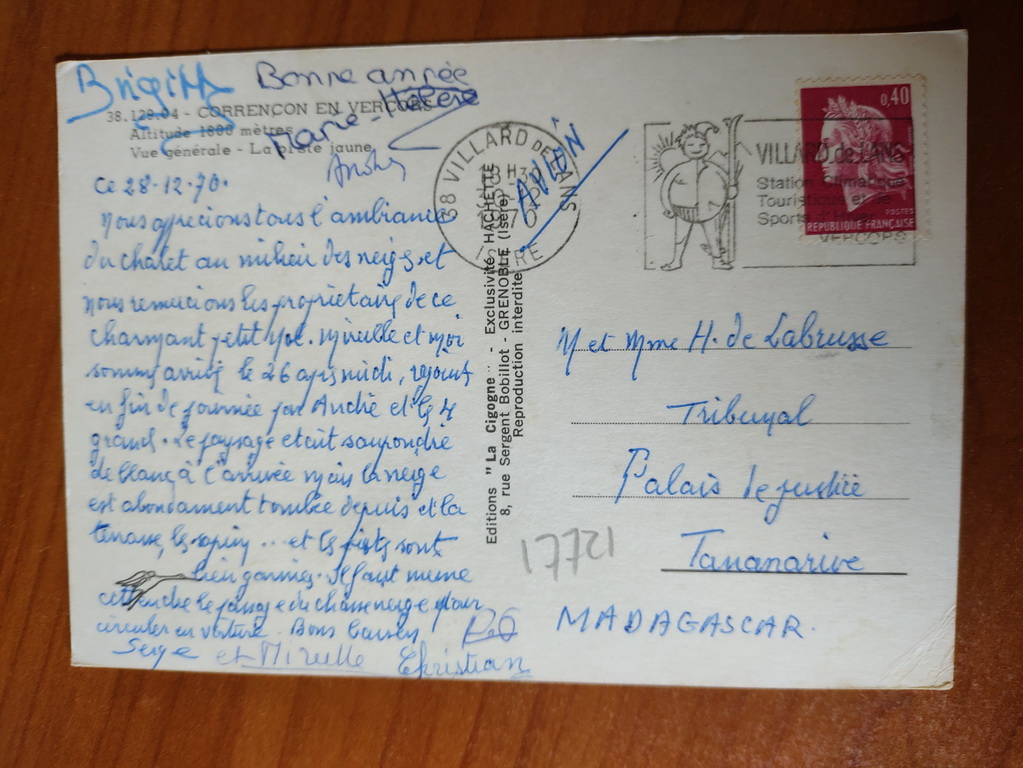 Brigitte
Bonne année
38.129.04 - CORRENÇON EN VERCORS
Marie-Hélène
Altitude 1800 mètres
Vue générale - La piste jaune
André
Ce 28.12.70.
Nous aprecions tous l'ambiance
du chalet au milieu des neiges et
nous remercions les proprietaires de ce
charmant petit . Mireille et moi
sommes arrivés le 26 après midi, rejoints
en fin de journée par André et les 4
grands. Le paysage etait saupondré
de blanc à l'arrivée mais la neige
est abondament tombée depuis et la
terrasse, les sapins ... et les pistes sont
bien garnies. Il faut meme
attendre le passage du chasse neige pour
circuler en voiture. Bons baisers
Serge et Mireille Christian
Editions "La Cigogne" - Exclusivité HACHETTE
8, rue Sergent Bobillot - GRENOBLE (Isère)
Reproduction interdite
38 VILLARD DE LANS
70
ISERE
AVION
VILLARD de LANS
Station Climatique
Touristique et de
Sports
VERCORS
0,40
POSTES
REPUBLIQUE FRANÇAISE
M et Mme H. de Labrusse
Tribunal
Palais de justice
Tananarive
MADAGASCAR.
17721